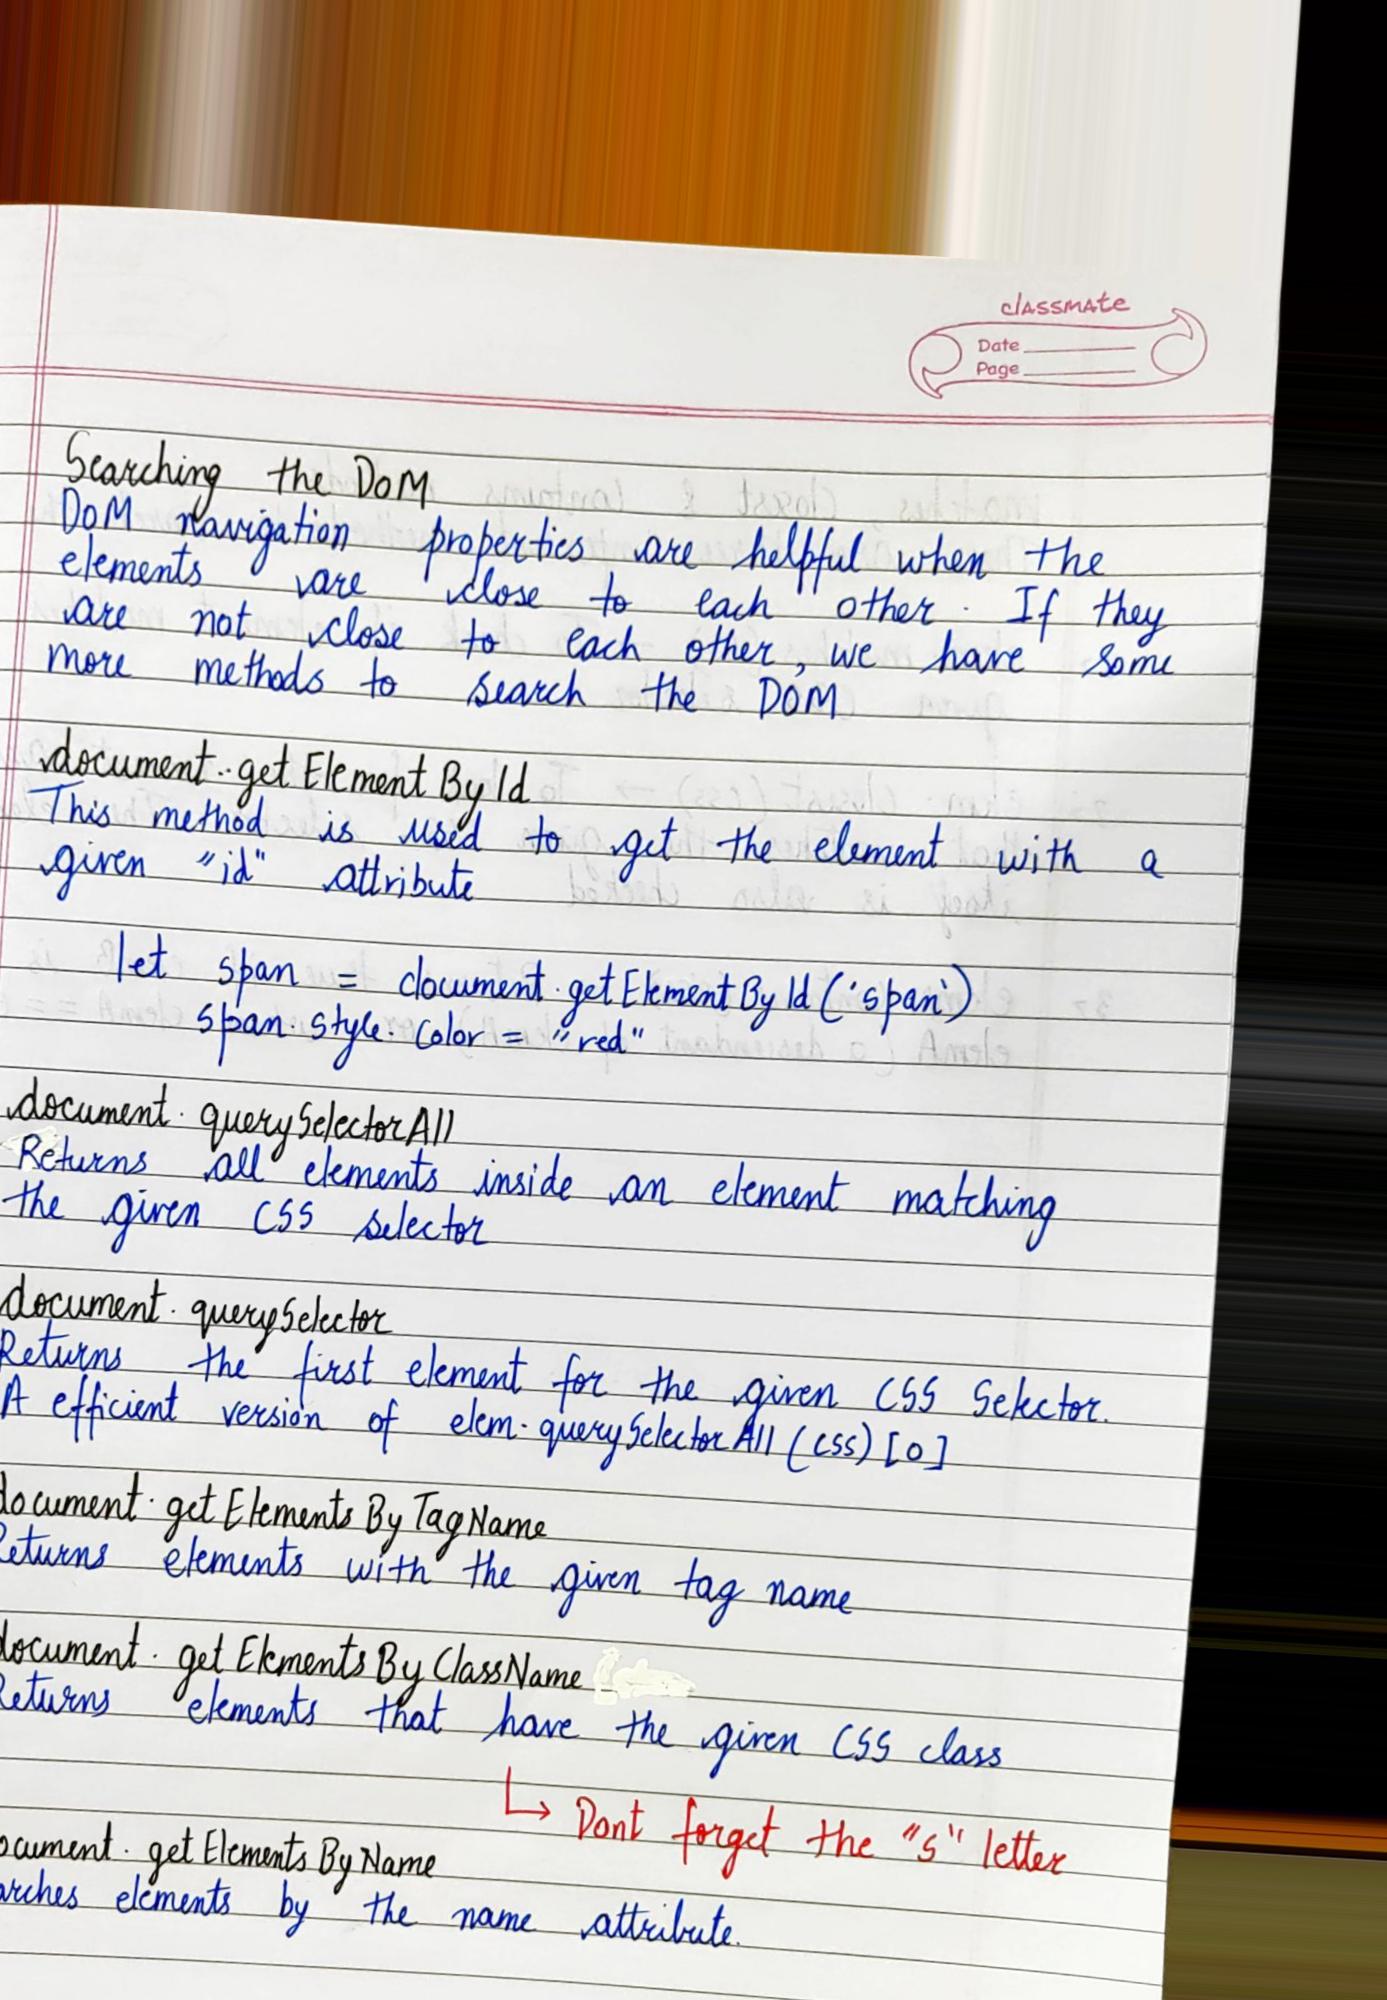 classmate
Date
Page
Searching the DOM
DOM navigation properties are helpful when the
elements are close to each other. If they
are not close to each other, we have some
more methods to search the DOM
document.getElementById
This method is used to get the element with a
given "id" attribute
let span = document.getElementById('span')
span.style.color = "red"
document.querySelectorAll
Returns all elements inside an element matching
the given CSS selector
document.querySelector
Returns the first element for the given CSS Selector.
A efficient version of elem.querySelectorAll(css)[0]
document.getElementsByTagName
Returns elements with the given tag name
document.getElementsByClassName
Returns elements that have the given CSS class
↳ Dont forget the "s" letter
ocument.getElementsByName
arches elements by the name attribute.